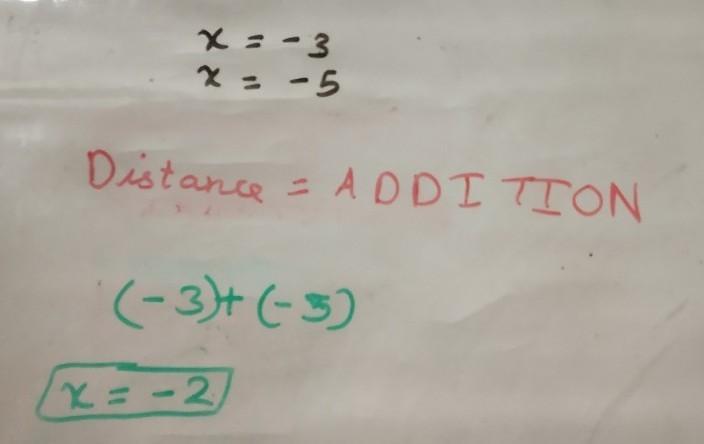 x = -3
x = -5
Distance = ADDITION
(-3)+(-5)
x = -2